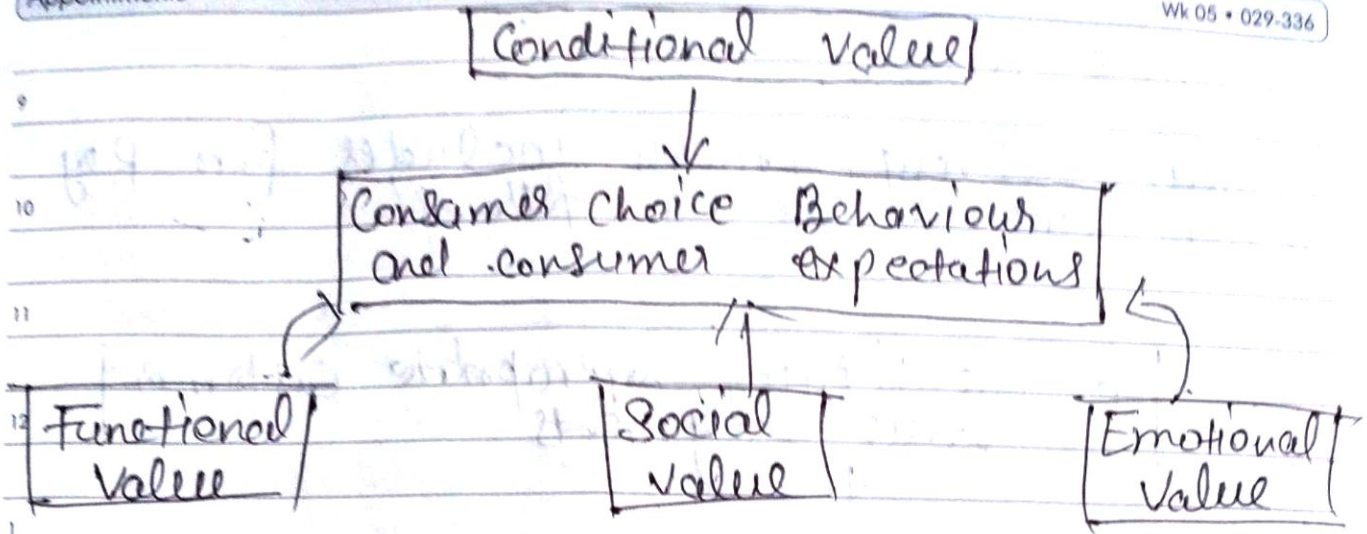 Wk 05 • 029-336
Conditional Value
9
10
Consumer Choice Behaviour
and consumer expectations
11
12
Functional
Value
Social
Value
Emotional
Value
1